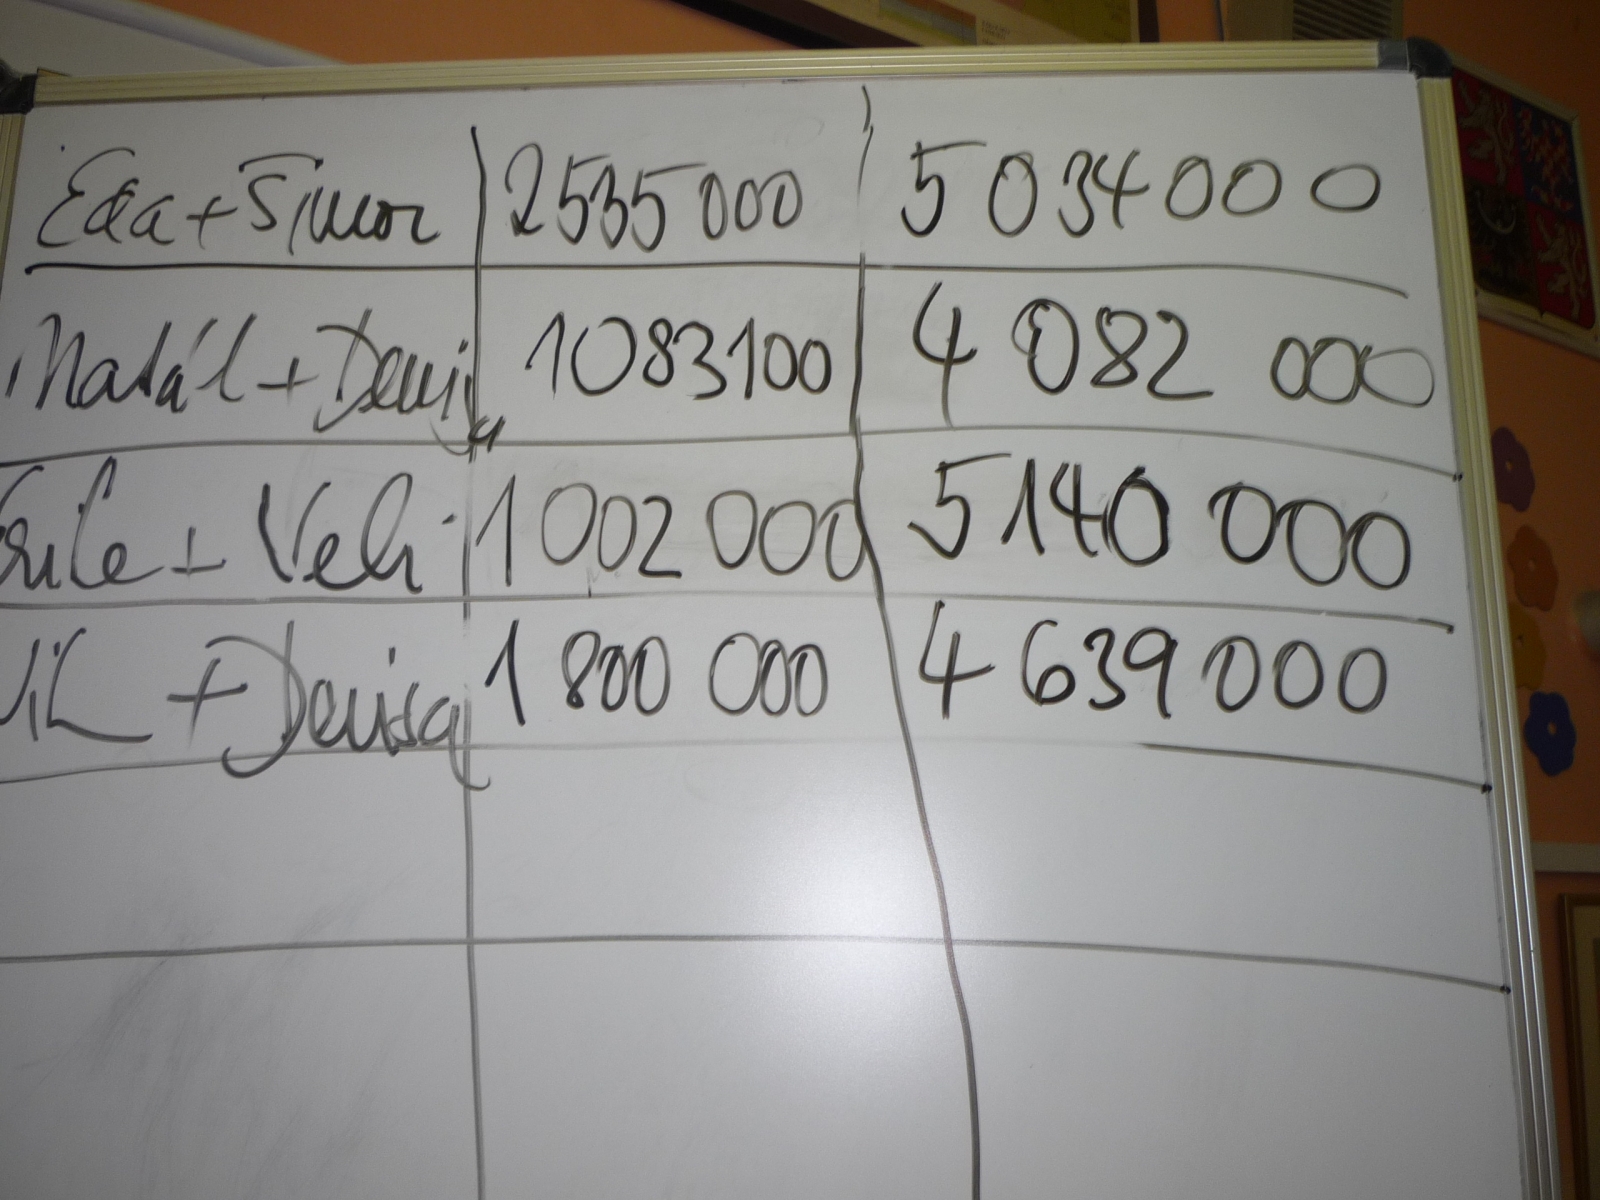 Eda + Šimon 2535 000 5 034 000
Natál + Denisa 1083100 4 082 000
+ Veli 1 002 000 5140 000
+ Denisa 1 800 000 4 639 000